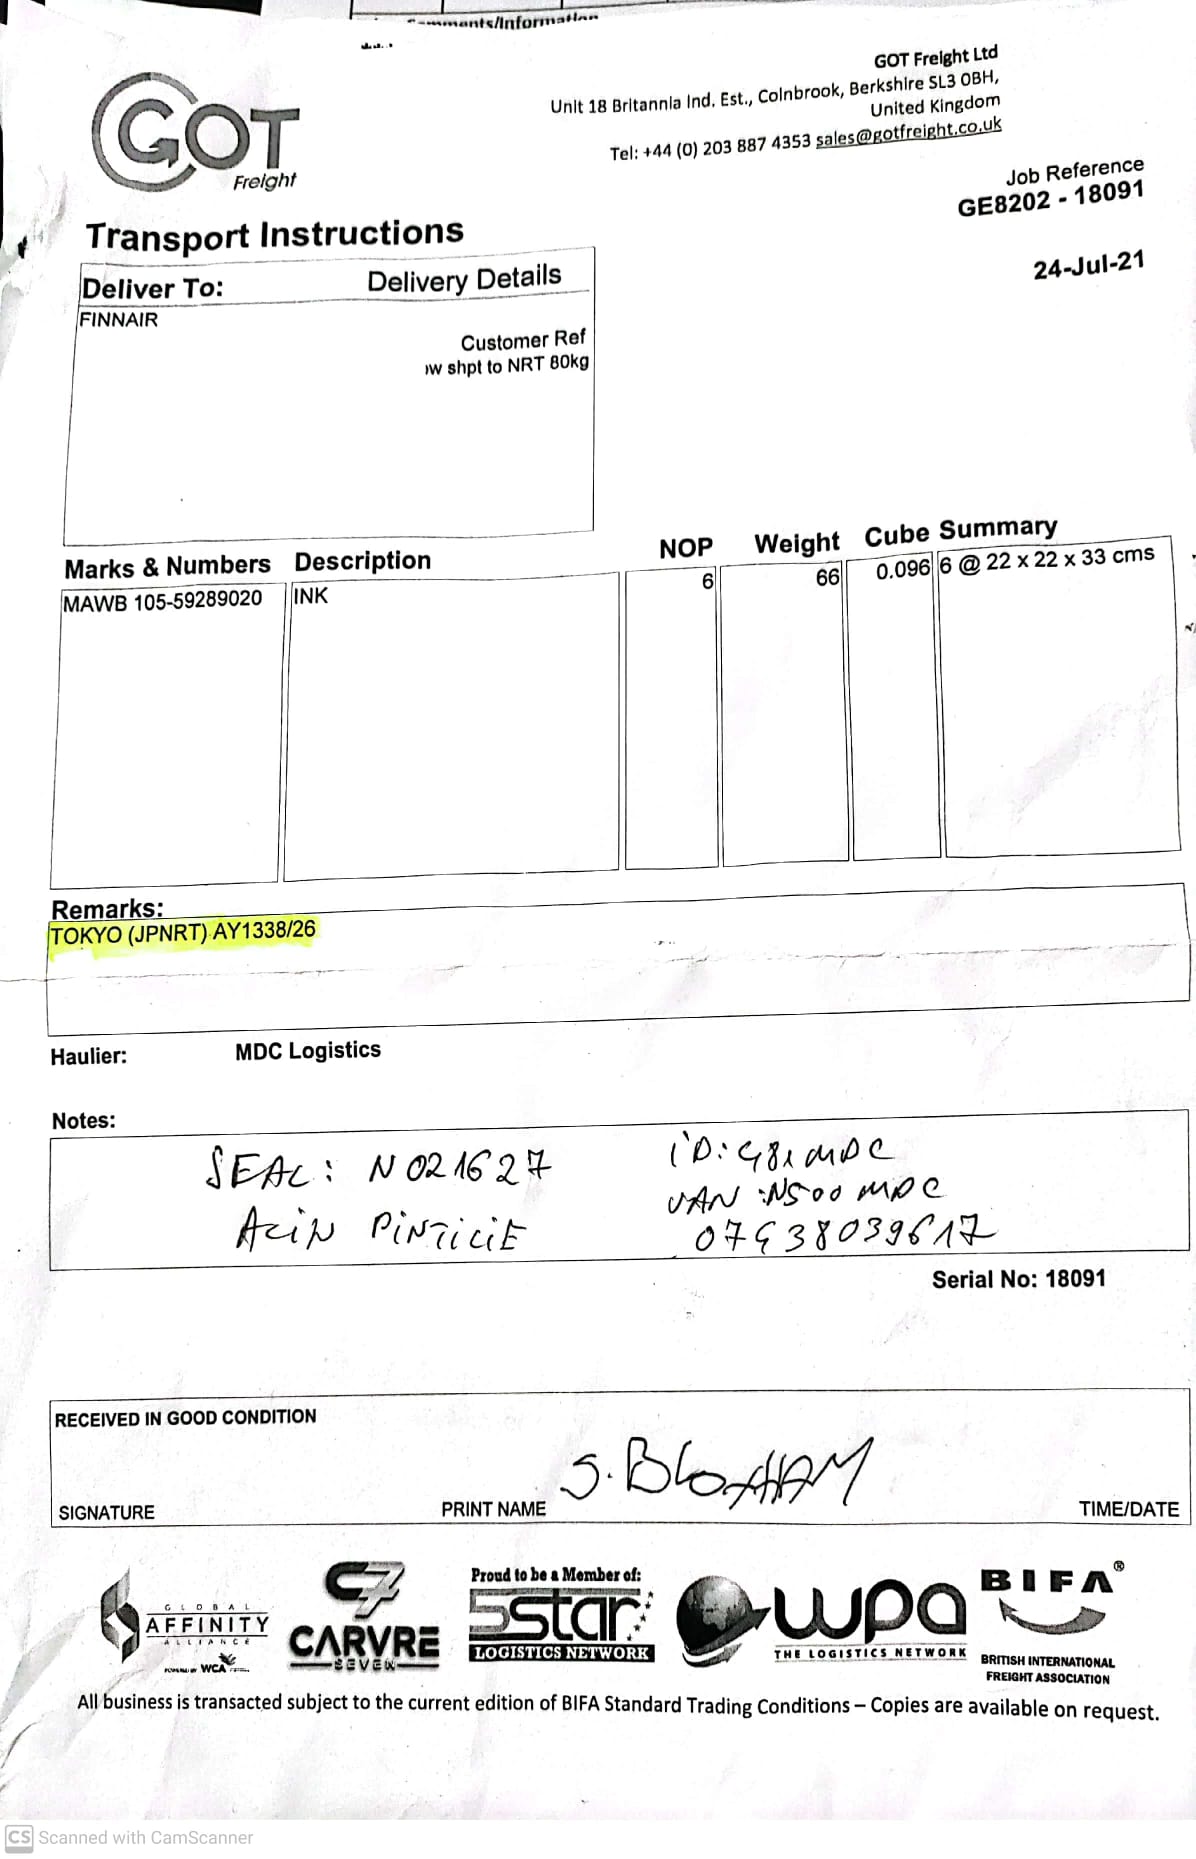 GOT
Freight
GOT Freight Ltd
Unit 18 Britannia Ind. Est., Colnbrook, Berkshire SL3 0BH,
United Kingdom
Tel: +44 (0) 203 887 4353 sales@gotfreight.co.uk
Job Reference
GE8202 - 18091
24-Jul-21
Transport Instructions
Deliver To: Delivery Details
FINNAIR
Customer Ref
shpt to NRT 80kg
Marks & Numbers Description NOP Weight Cube Summary
MAWB 105-59289020 INK 6 66 0.096 6 @ 22 x 22 x 33 cms
Remarks:
TOKYO (JPNRT) AY1338/26
Haulier: MDC Logistics
Notes:
SEAL: N021627
ID: G81 MDC
VAN: N500 MDC
Serial No: 18091
RECEIVED IN GOOD CONDITION
S. BLOXHAM
SIGNATURE PRINT NAME TIME/DATE
GLOBAL
AFFINITY
ALLIANCE
POWERED BY WCA
C7
CARVRE
SEVEN
Proud to be a Member of:
5star
LOGISTICS NETWORK
wpa
THE LOGISTICS NETWORK
BIFA®
BRITISH INTERNATIONAL
FREIGHT ASSOCIATION
All business is transacted subject to the current edition of BIFA Standard Trading Conditions – Copies are available on request.
CS Scanned with CamScanner